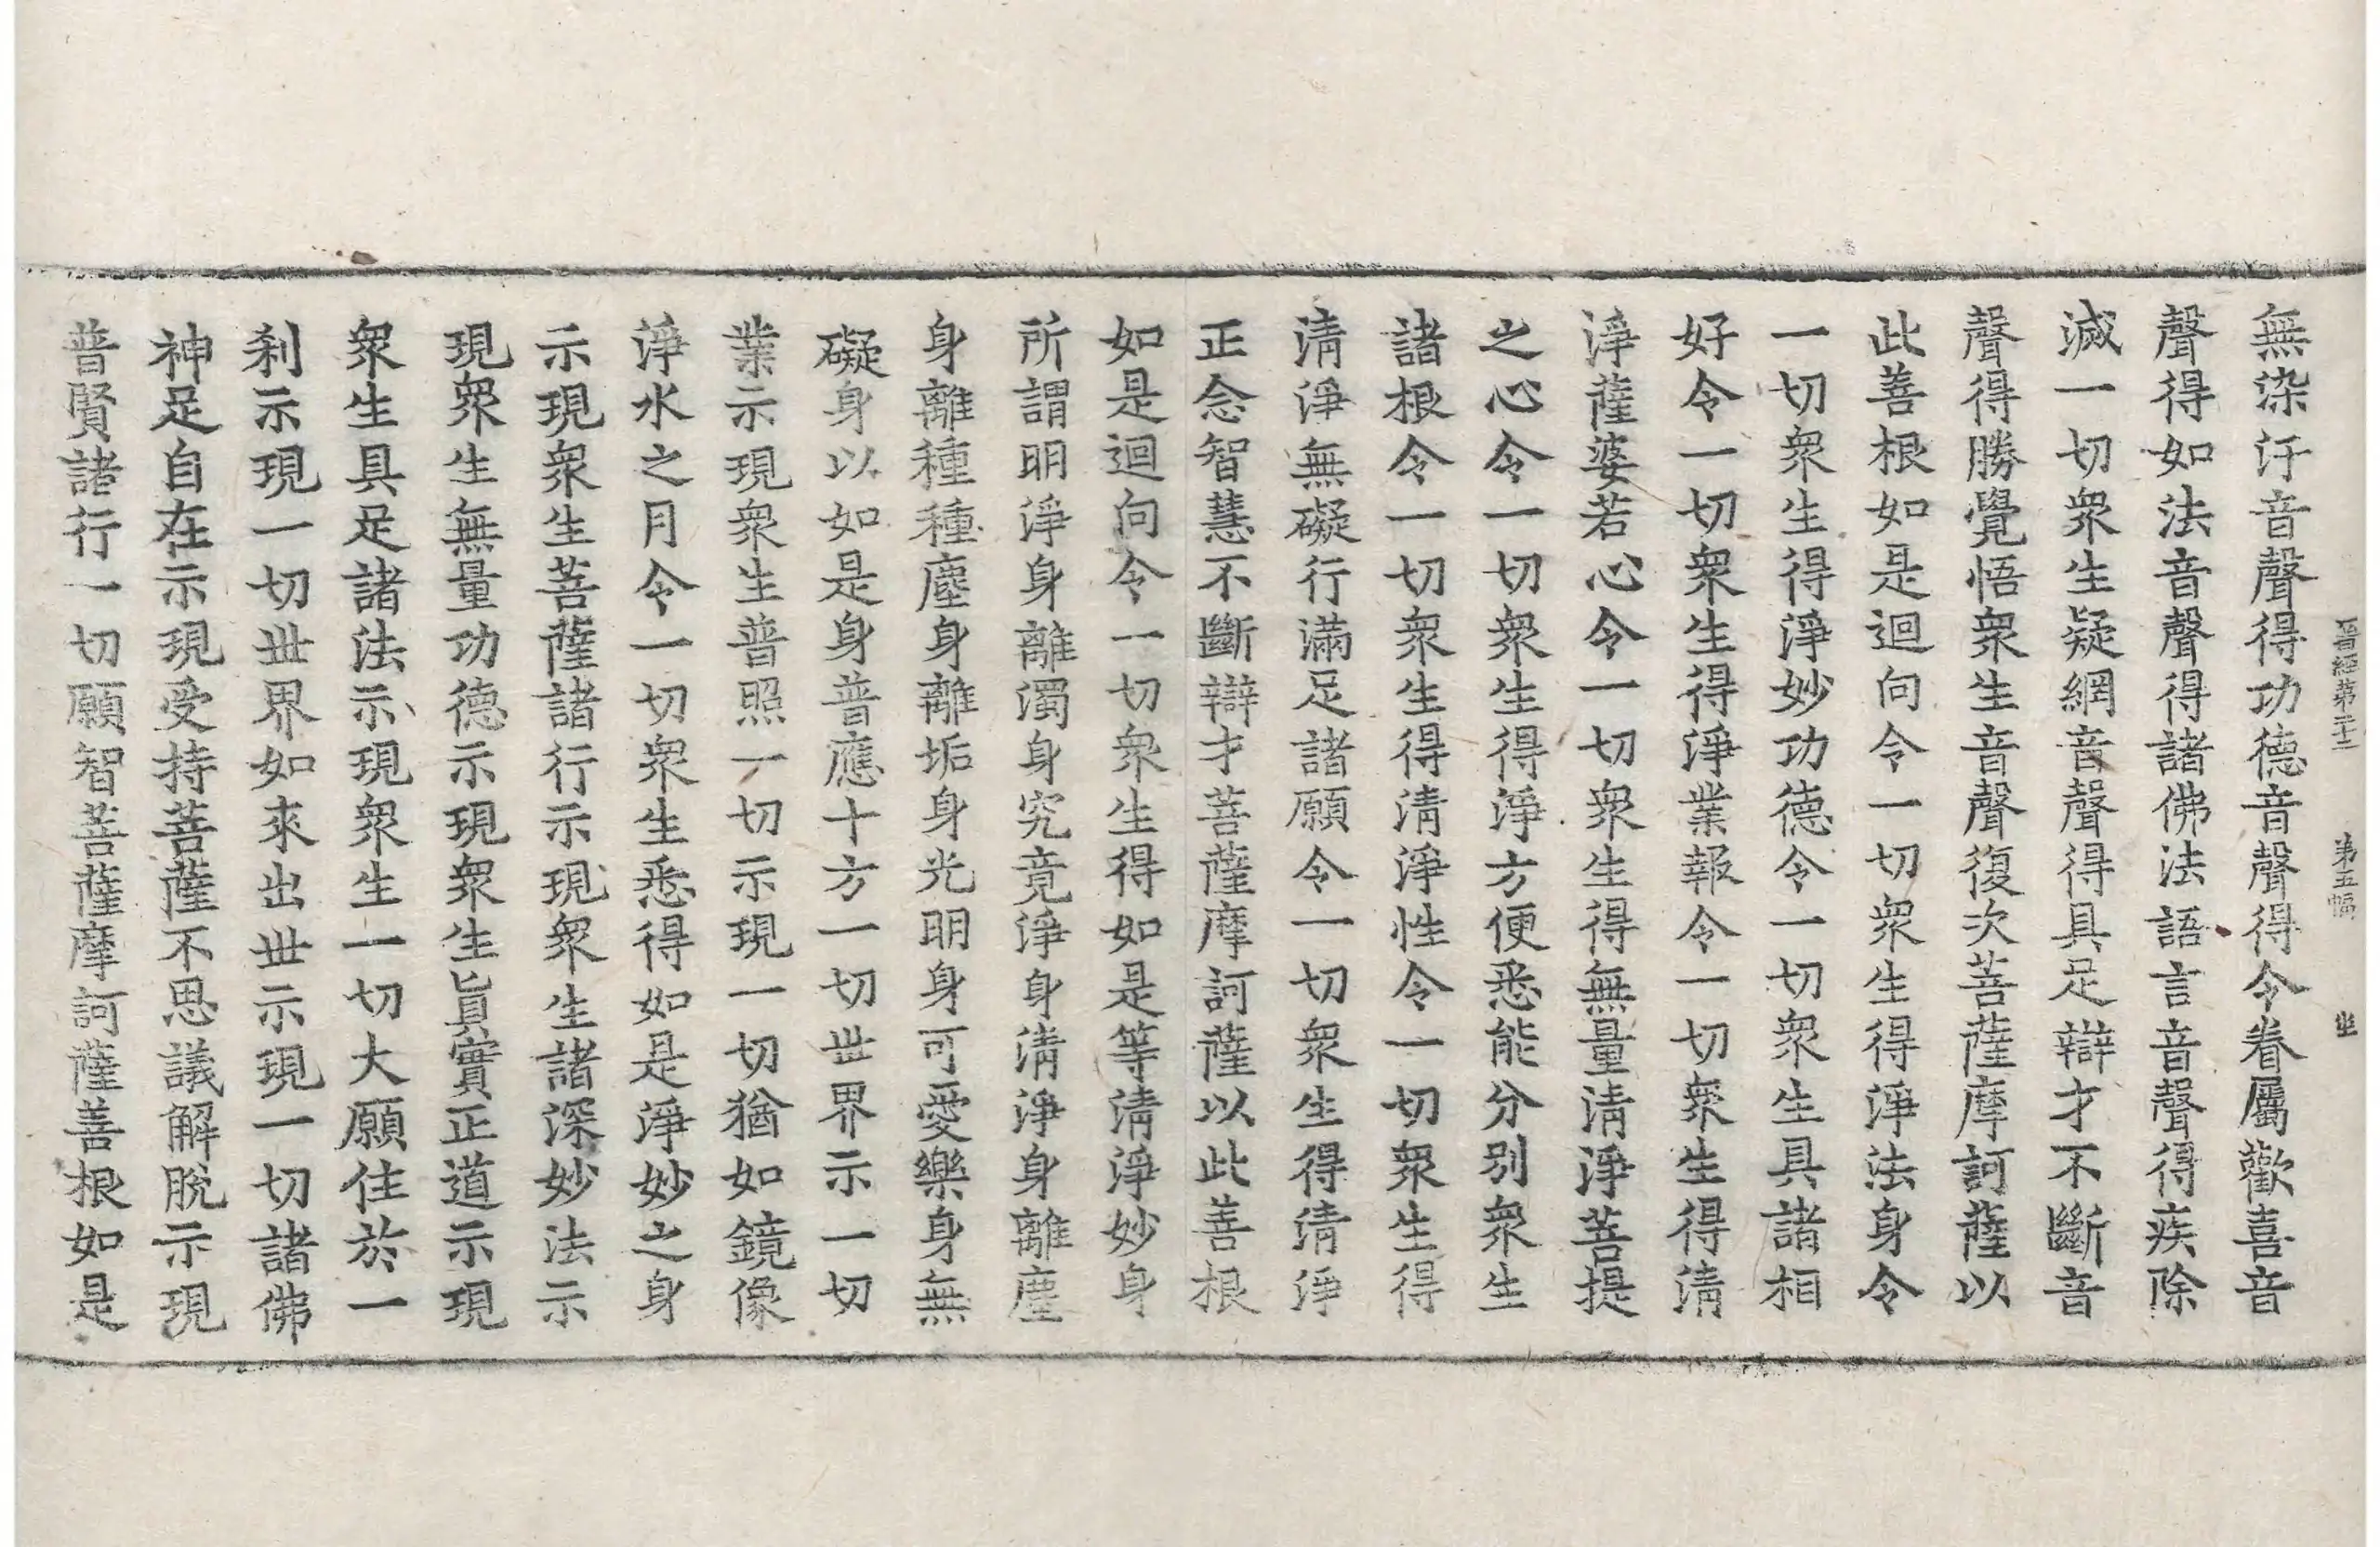 晉經第二十二　第五幅　坐
無染汙音聲得功德音聲得令眷屬歡喜音
聲得如法音聲得諸佛法語言音聲得疾除
滅一切衆生疑網音聲得具足辯才不斷音
聲得勝覺悟衆生音聲復次菩薩摩訶薩以
此善根如是迴向令一切衆生得淨法身令
一切衆生得淨妙功德令一切衆生具諸相
好令一切衆生得淨業報令一切衆生得淸
淨薩婆若心令一切衆生得無量淸淨菩提
之心令一切衆生得淨方便悉能分別衆生
諸根令一切衆生得淸淨性令一切衆生得
淸淨無礙行滿足諸願令一切衆生得淸淨
正念智慧不斷辯才菩薩摩訶薩以此善根
如是迴向令一切衆生得如是等淸淨妙身
所謂明淨身離濁身究竟淨身淸淨身離塵
身離種種塵身離垢身光明身可愛樂身無
礙身以如是身普應十方一切世界示一切
業示現衆生普照一切示現一切猶如鏡像
淨水之月令一切衆生悉得如是淨妙之身
示現衆生菩薩諸行示現衆生諸深妙法示
現衆生無量功德示現衆生眞實正道示現
衆生具足諸法示現衆生一切大願住於一
刹示現一切世界如來出世示現一切諸佛
神足自在示現受持菩薩不思議解脫示現
普賢諸行一切願智菩薩摩訶薩善根如是